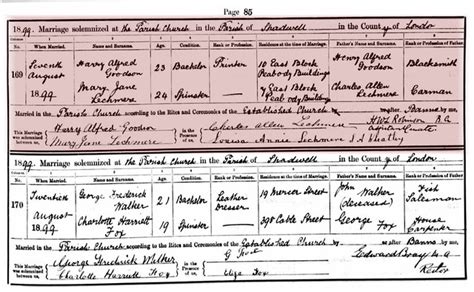 Page 85
1899. Marriage solemnized at the Parish Church in the Parish of Shadwell in the County of London
No. When Married. Name and Surname. Age. Condition. Rank or Profession. Residence at the time of Marriage. Father's Name and Surname. Rank or Profession of Father.
169 Seventh August 1899 Harry Alfred Goodson 23 Bachelor Printer 10 East Block Peabody Buildings Henry Alfred Goodson Blacksmith
Mary Jane Lechmere 24 Spinster 7 East Block Peabody Buildings Charles Allen Lechmere Carman
Married in the Parish Church according to the Rites and Ceremonies of the Established Church after Banns by me,
This Marriage was solemnized between us, Harry Alfred Goodson Mary Jane Lechmere in the Presence of us, Charles Allen Lechmere Louisa Annie Lechmere Robinson B.A.
1899. Marriage solemnized at the Parish Church in the Parish of Shadwell in the County of London
No. When Married. Name and Surname. Age. Condition. Rank or Profession. Residence at the time of Marriage. Father's Name and Surname. Rank or Profession of Father.
170 Twentieth August 1899 George Frederick Walker 21 Bachelor Leather Dresser 19 Mercer Street John Walker (deceased) Fish Salesman
Charlotte Harriett Fox 19 Spinster 398 Cable Street George Fox House Carpenter
Married in the Parish Church according to the Rites and Ceremonies of the Established Church after Banns by me,
This Marriage was solemnized between us, George Fredrick Walker Charlotte Harriett Fox in the Presence of us, Eliza Fox Edward Bray M.A. Rector